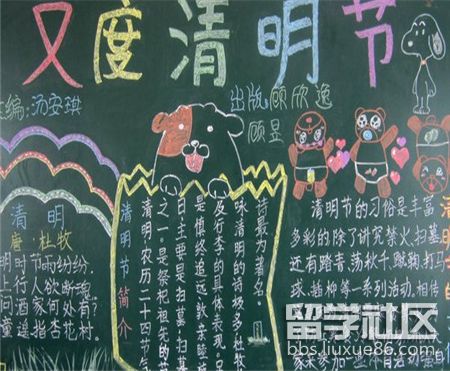 又度清明节
编:汤安琪
出版:顾欣逸
顾昱
清明
唐·杜牧
明时节雨纷纷.
上行人欲断魂
问酒家何处有?
童遥指杏花村.
清明节简介
清明,农历二十四节气
之一。是祭祀祖先的节
日主要是扫墓,扫墓
是慎终追远、敦亲睦族
及行孝的具体表现。
味清明的诗极多,杜牧
诗最为著名。
清明节的习俗是丰富
多彩的除了讲究禁火、扫墓
还有踏青、荡秋千、蹴鞠、打马
球、插柳等一系列活动.相传
家来参加一些
留学社区
bbs.liuxue86.com